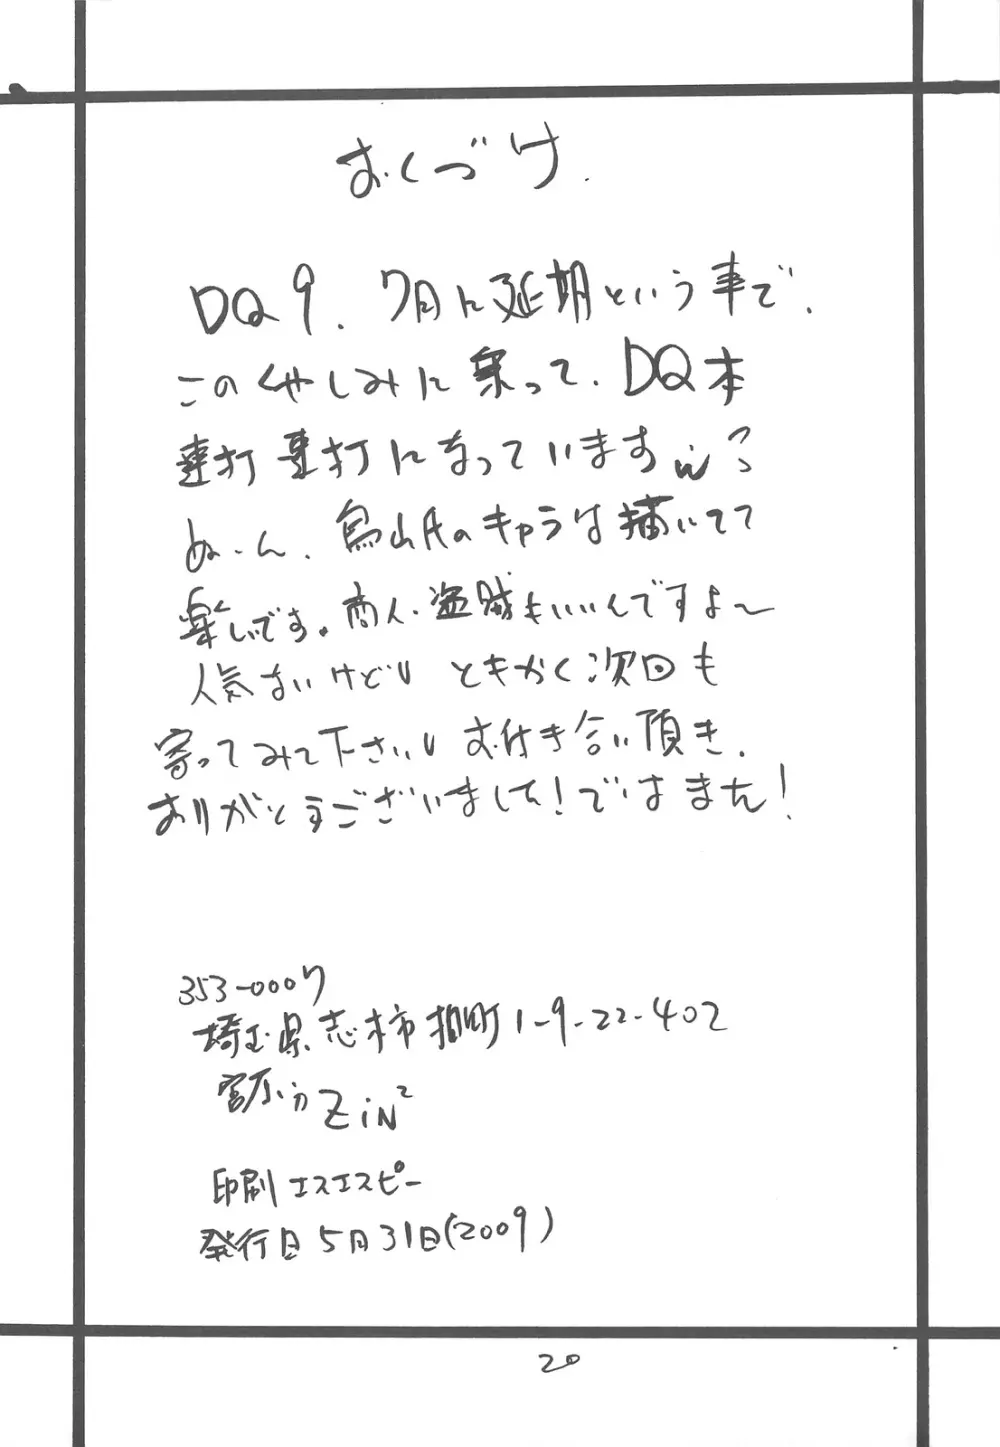 おくづけ.
DQ9. 7月に延期という事で.
このくやしみに乗って. DQ本
連打連打になっていますw
ぬーん. 鳥山氏のキャラは描いてて
楽しいです。商人・盗賊もいいんですよ〜
人気ないけどし ともかく次回も
寄ってみて下さいし お付き合い頂き.
ありがとうございました!ではまた!
353-0007
埼玉県志木市柏町1-9-22-402
ZiN²
印刷 エスエスピー
発行日 5月31日(2009)
20